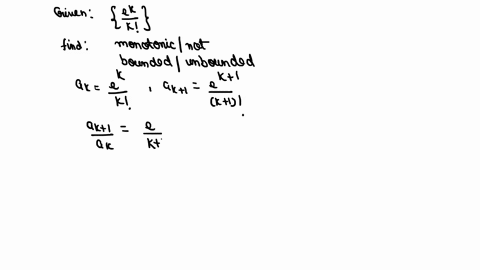 Given: {e^k/k!}
find: monotonic/not
bounded/unbounded
a_k = e^k/k! , a_{k+1} = e^{k+1}/(k+1)!
a_{k+1}/a_k = e/k+